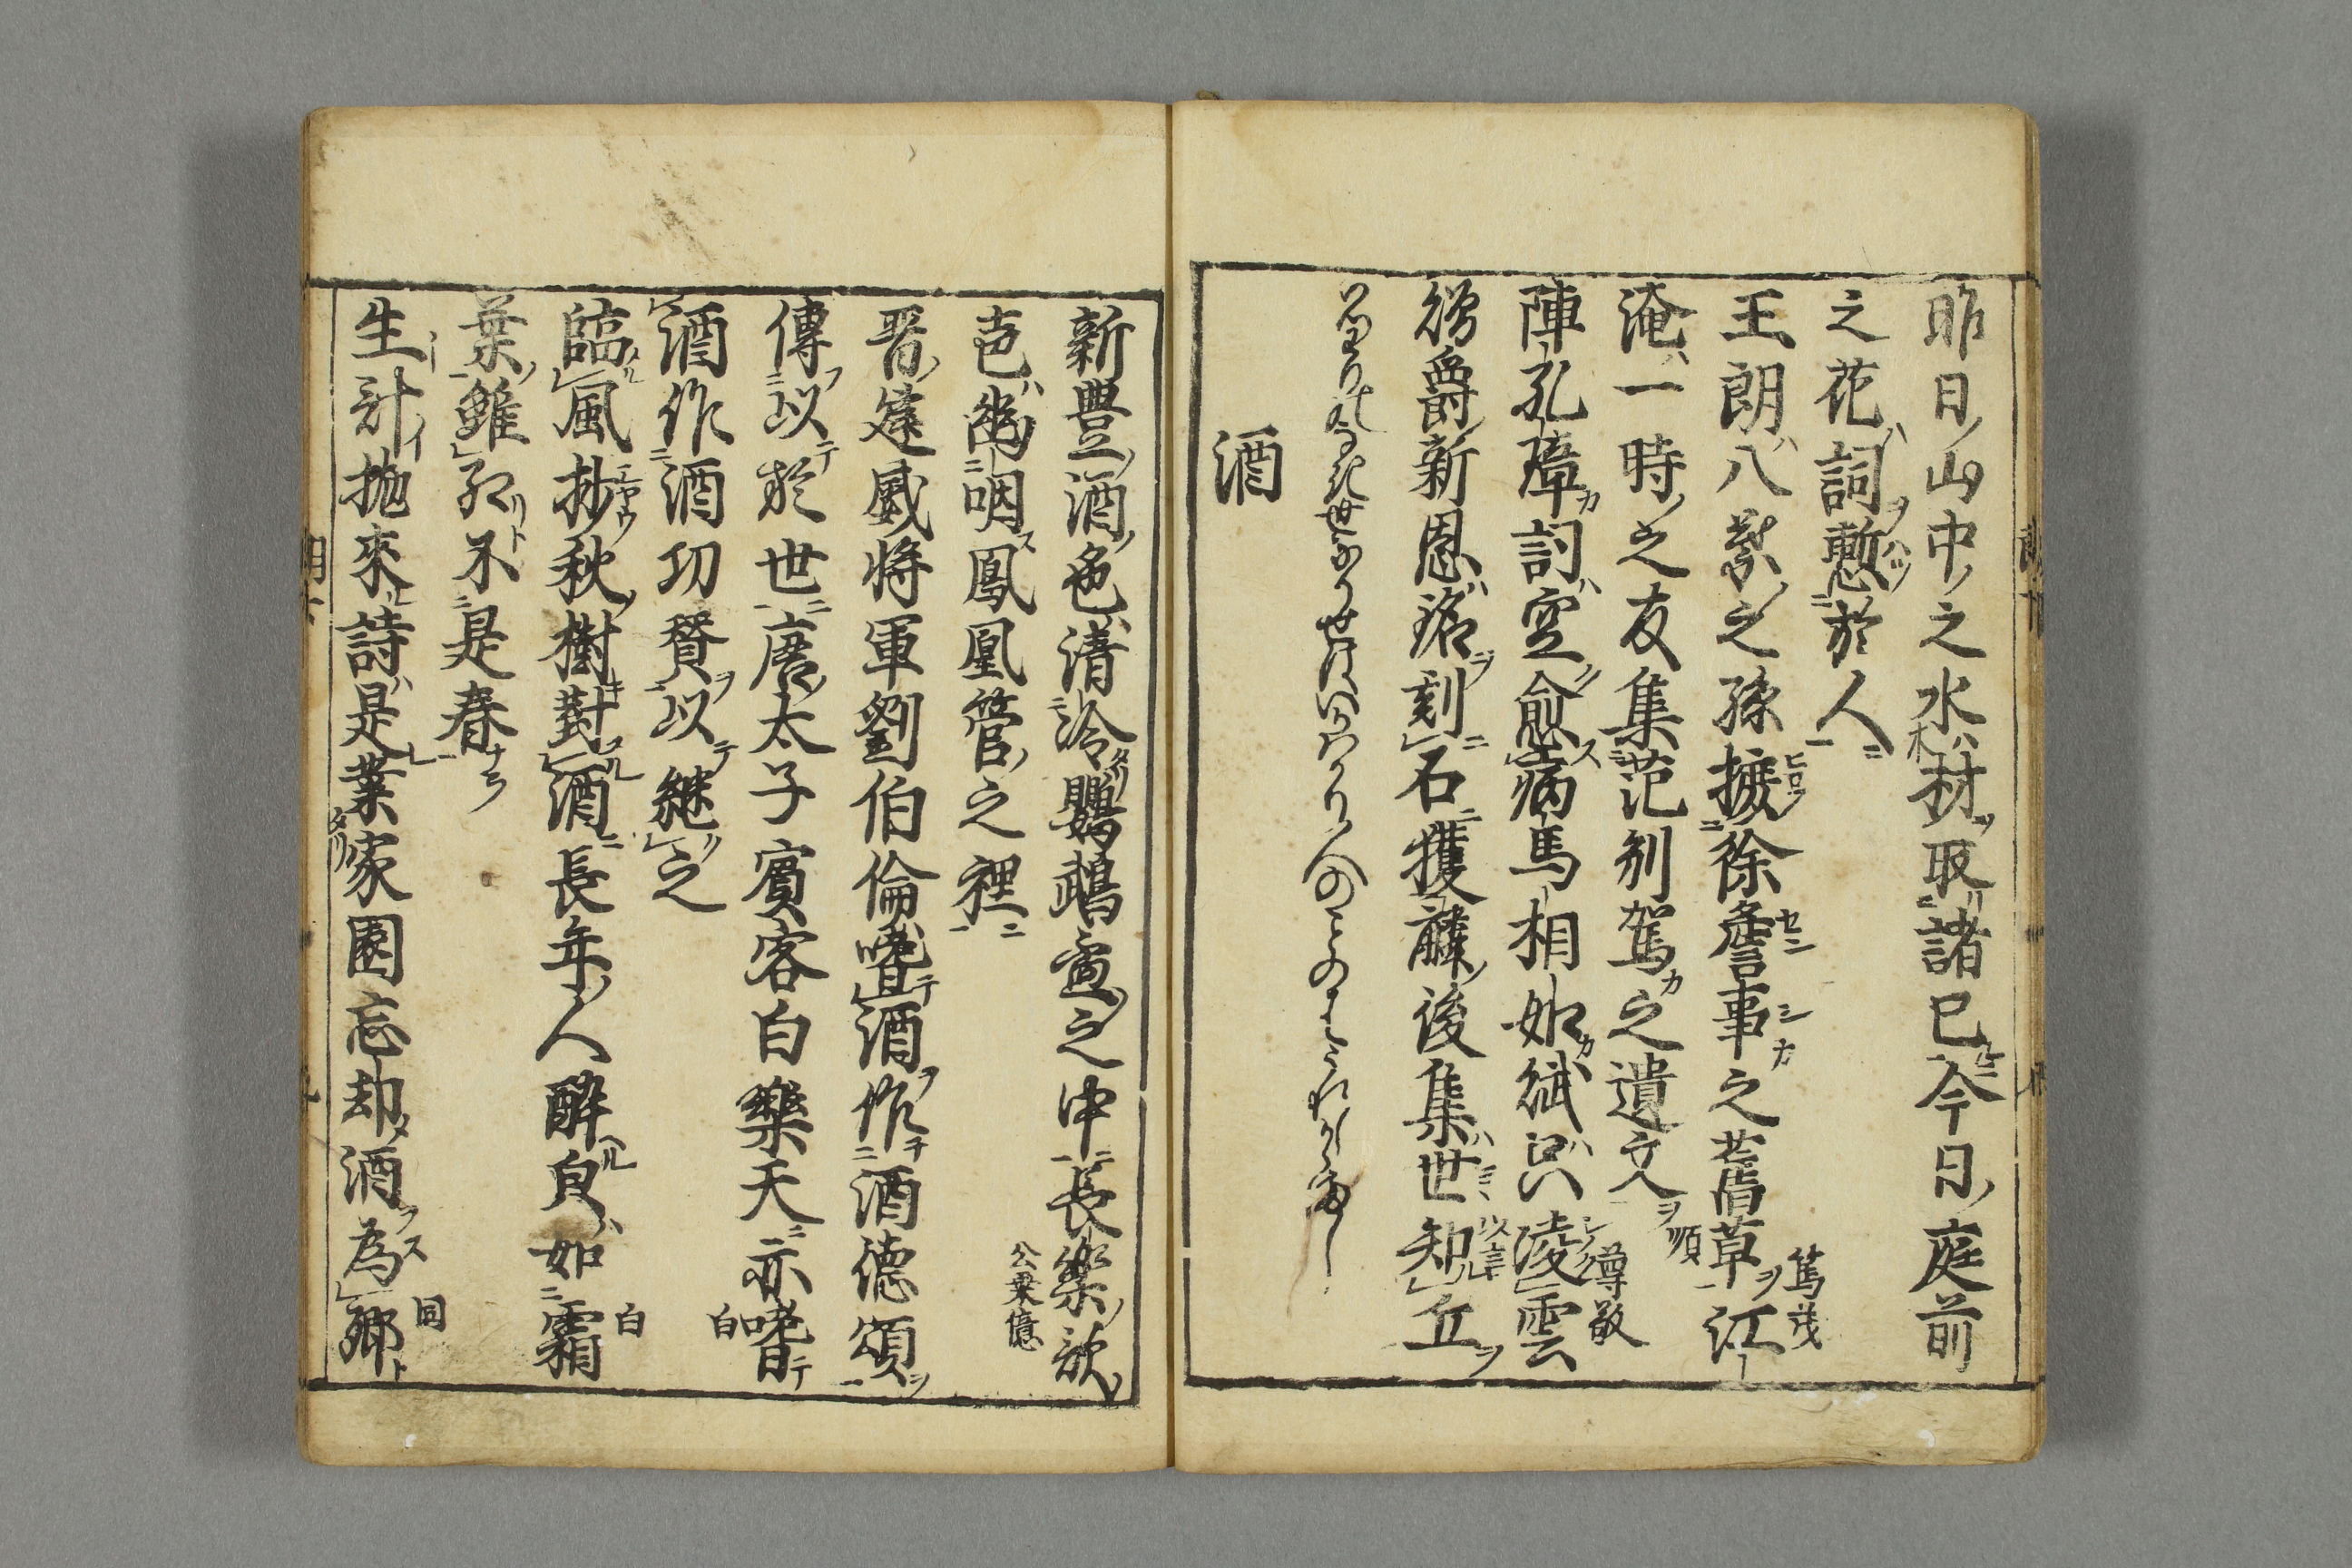 昨日山中之水材取諸已今日庭前
之花詞慙於人 篤茂
王朗八葉之孫摭徐詹事之舊草江
淹一時之友集范別駕之遺文 順
陣孔璋詞空愈病馬相如賦只凌雲 尊敬
贈爵新恩銘刻石獲麟後集世知丘 以言
いつはりのなき世なりせはいかはかり人のことのはうれしからまし
酒
新豊酒色清冷鸚鵡盃之中長樂歌
声幽咽鳳凰管之裡 公乗億
晋建威将軍劉伯倫嗜酒作酒德頌
傳以於世唐太子賓客白樂天亦嗜
酒作酒功賛以継之 白
臨風抄秋樹對酒長年人醉皃如霜
葉雖紅不是春 白
生計抛來詩是業家園忘却酒為郷 同